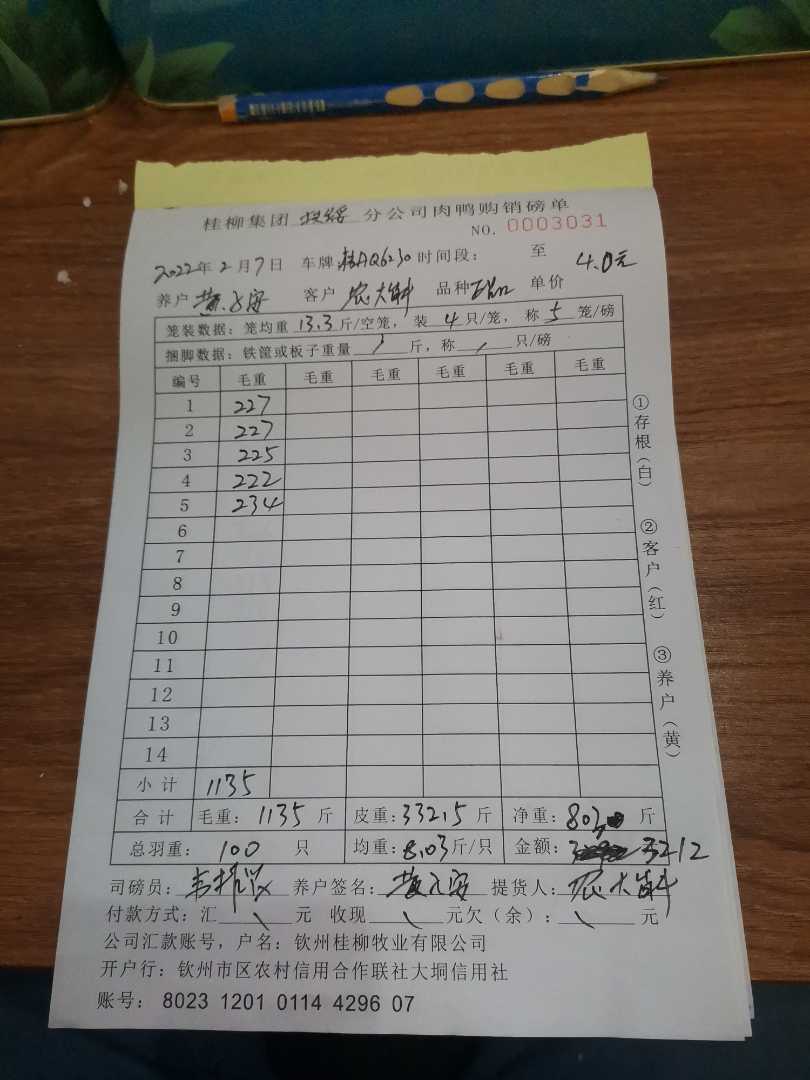 桂柳集团 扶绥 分公司肉鸭购销磅单
NO. 0003031
2022年2月7日 车牌 桂AQ6230 时间段： 至
养户 黄 安 客户 农大 品种 单价 4.0元
笼装数据：笼均重 13.3 斤/空笼， 装 4 只/笼， 称 5 笼/磅
捆脚数据：铁筐或板子重量 / 斤，称 / 只/磅
编号 毛重 毛重 毛重 毛重 毛重 毛重
1 227
2 227
3 225
4 222
5 234
6
7
8
9
10
11
12
13
14
小计 1135
合计 毛重：1135 斤 皮重：332.5 斤 净重：803 斤
总羽重： 100 只 均重：8.03斤/只 金额： 3212
司磅员： 养户签名：黄 安 提货人：农大
付款方式：汇 \ 元 收现 \ 元欠（余）： \ 元
公司汇款账号，户名：钦州桂柳牧业有限公司
开户行：钦州市区农村信用合作联社大垌信用社
账号： 8023 1201 0114 4296 07
①存根（白）
②客户（红）
③养户（黄）